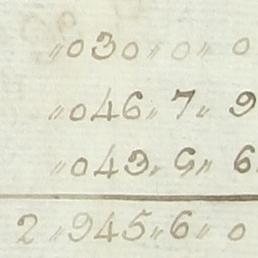 〃030〃0〃0
〃046〃7〃9
〃043〃5〃6
2〃945〃6〃0